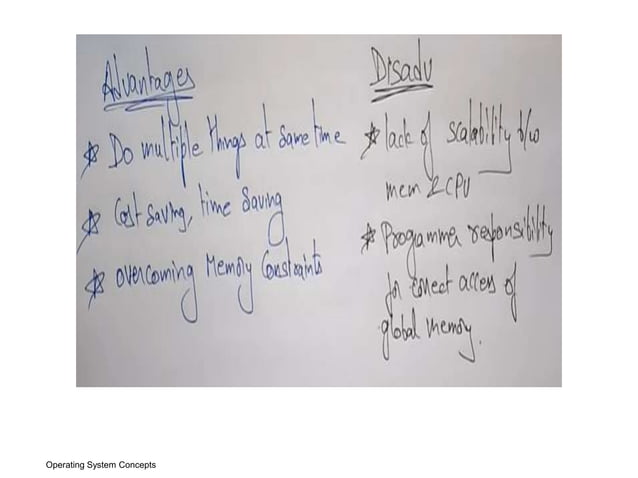 Advantages
* Do multiple things at same time
* Cost saving, time saving
* overcoming Memory Constraints
Disadv
* lack of scalability b/w
mem & CPU
* Programmer responsibility
for correct access of
global memory.
Operating System Concepts